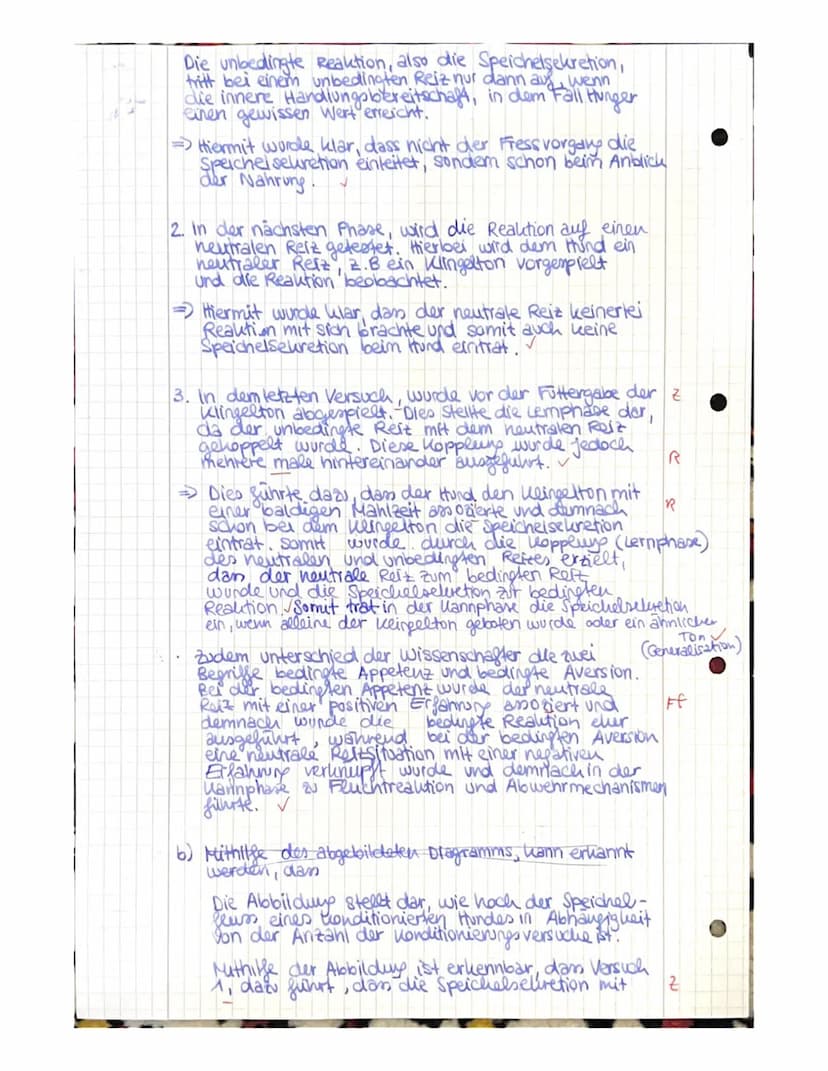 Die unbedingte Reaktion, also die Speichelsekretion,
tritt bei einem unbedingten Reiz nur dann auf, wenn
die innere Handlungsbereitschaft, in dem Fall Hunger
einen gewissen Wert erreicht.
=> Hiermit wurde klar, dass nicht der Fressvorgang die
Speichelsekretion einleitet, sondern schon beim Anblick
der Nahrung. ✓
2. In der nächsten Phase, wird die Reaktion auf einen
neutralen Reiz getestet. Hierbei wird dem Hund ein
neutraler Reiz, z.B ein Klingelton vorgespielt
und die Reaktion beobachtet.
=> Hiermit wurde klar, dass der neutrale Reiz keinerlei
Reaktion mit sich brachte und somit auch keine
Speichelsekretion beim Hund eintrat. ✓
3. In dem letzten Versuch, wurde vor der Füttergabe der Z
Klingelton abgespielt. Dies stellte die Lernphase dar,
da der unbedingte Reiz mit dem neutralen Reiz
gekoppelt wurde. Diese Kopplung wurde jedoch
mehrere male hintereinander ausgeführt. ✓ R
=> Dies führte dazu, dass der Hund den Klingelton mit
einer baldigen Mahlzeit assozierte und demnach R
schon bei dem Klingelton die Speichelsekretion
eintrat. Somit wurde durch die Kopplung (Lernphase)
des neutralen und unbedingten Reizes erzielt,
dass der neutrale Reiz zum bedingten Reiz
wurde und die Speichelsekretion zur bedingten
Reaktion. ✓ Somit trat in der Kannphase die Speichelsekretion
ein, wenn alleine der Klingelton geboten wurde oder ein ähnlicher
Ton ✓
(Generalisation)
Zudem unterschied der Wissenschaftler die zwei
Begriffe bedingte Appetenz und bedingte Aversion.
Bei der bedingten Appetenz wurde der neutrale
Reiz mit einer positiven Erfahrung assoziert und Ff
demnach wurde die bedingte Reaktion eher
ausgeführt, während bei der bedingten Aversion
eine neutrale Reizsituation mit einer negativen
Erfahrung verknüpft wurde und demnach in der
Kannphase zu Fluchtreaktion und Abwehrmechanismen
führte. ✓
b) Mithilfe des abgebildeten Diagramms, kann erkannt
werden, dass
Die Abbildung stellt dar, wie hoch der Speichel-
fluss eines konditionierten Hundes in Abhängigkeit
von der Anzahl der Konditionierungsversuche ist.
Mithilfe der Abbildung ist erkennbar, dass Versuch
1, dazu führt, dass die Speichelsekretion mit Z